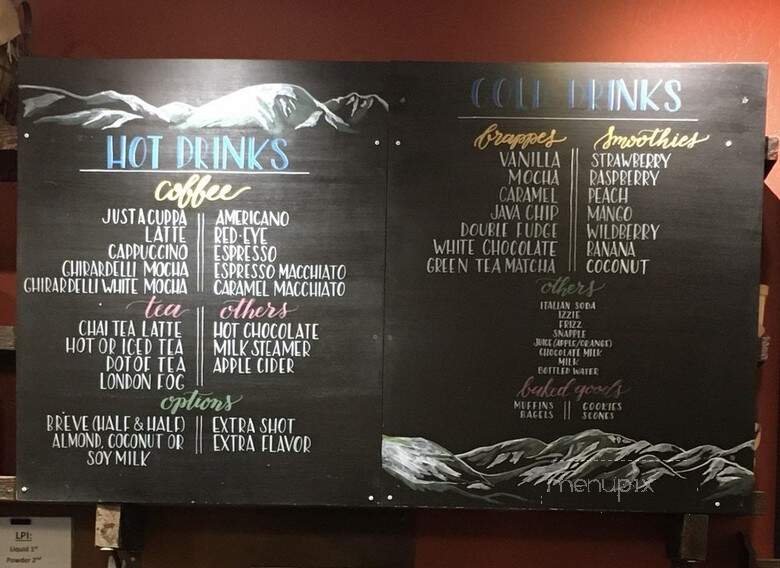 HOT DRINKS
coffee
JUST A CUPPA
LATTE
CAPPUCCINO
GHIRARDELLI MOCHA
GHIRARDELLI WHITE MOCHA
AMERICANO
RED-EYE
ESPRESSO
ESPRESSO MACCHIATO
CARAMEL MACCHIATO
tea
CHAI TEA LATTE
HOT OR ICED TEA
POT OF TEA
LONDON FOG
others
HOT CHOCOLATE
MILK STEAMER
APPLE CIDER
options
BRÈVE (HALF & HALF)
ALMOND, COCONUT OR
SOY MILK
EXTRA SHOT
EXTRA FLAVOR
COLD DRINKS
frappes
VANILLA
MOCHA
CARAMEL
JAVA CHIP
DOUBLE FUDGE
WHITE CHOCOLATE
GREEN TEA MATCHA
smoothies
STRAWBERRY
RASPBERRY
PEACH
MANGO
WILDBERRY
BANANA
COCONUT
others
ITALIAN SODA
IZZIE
FRIZZ
SNAPPLE
JUICE (APPLE/ORANGE)
CHOCOLATE MILK
MILK
BOTTLED WATER
baked goods
MUFFINS
BAGELS
COOKIES
SCONES
menupix
LPI:
Liquid 1st
Powder 2nd